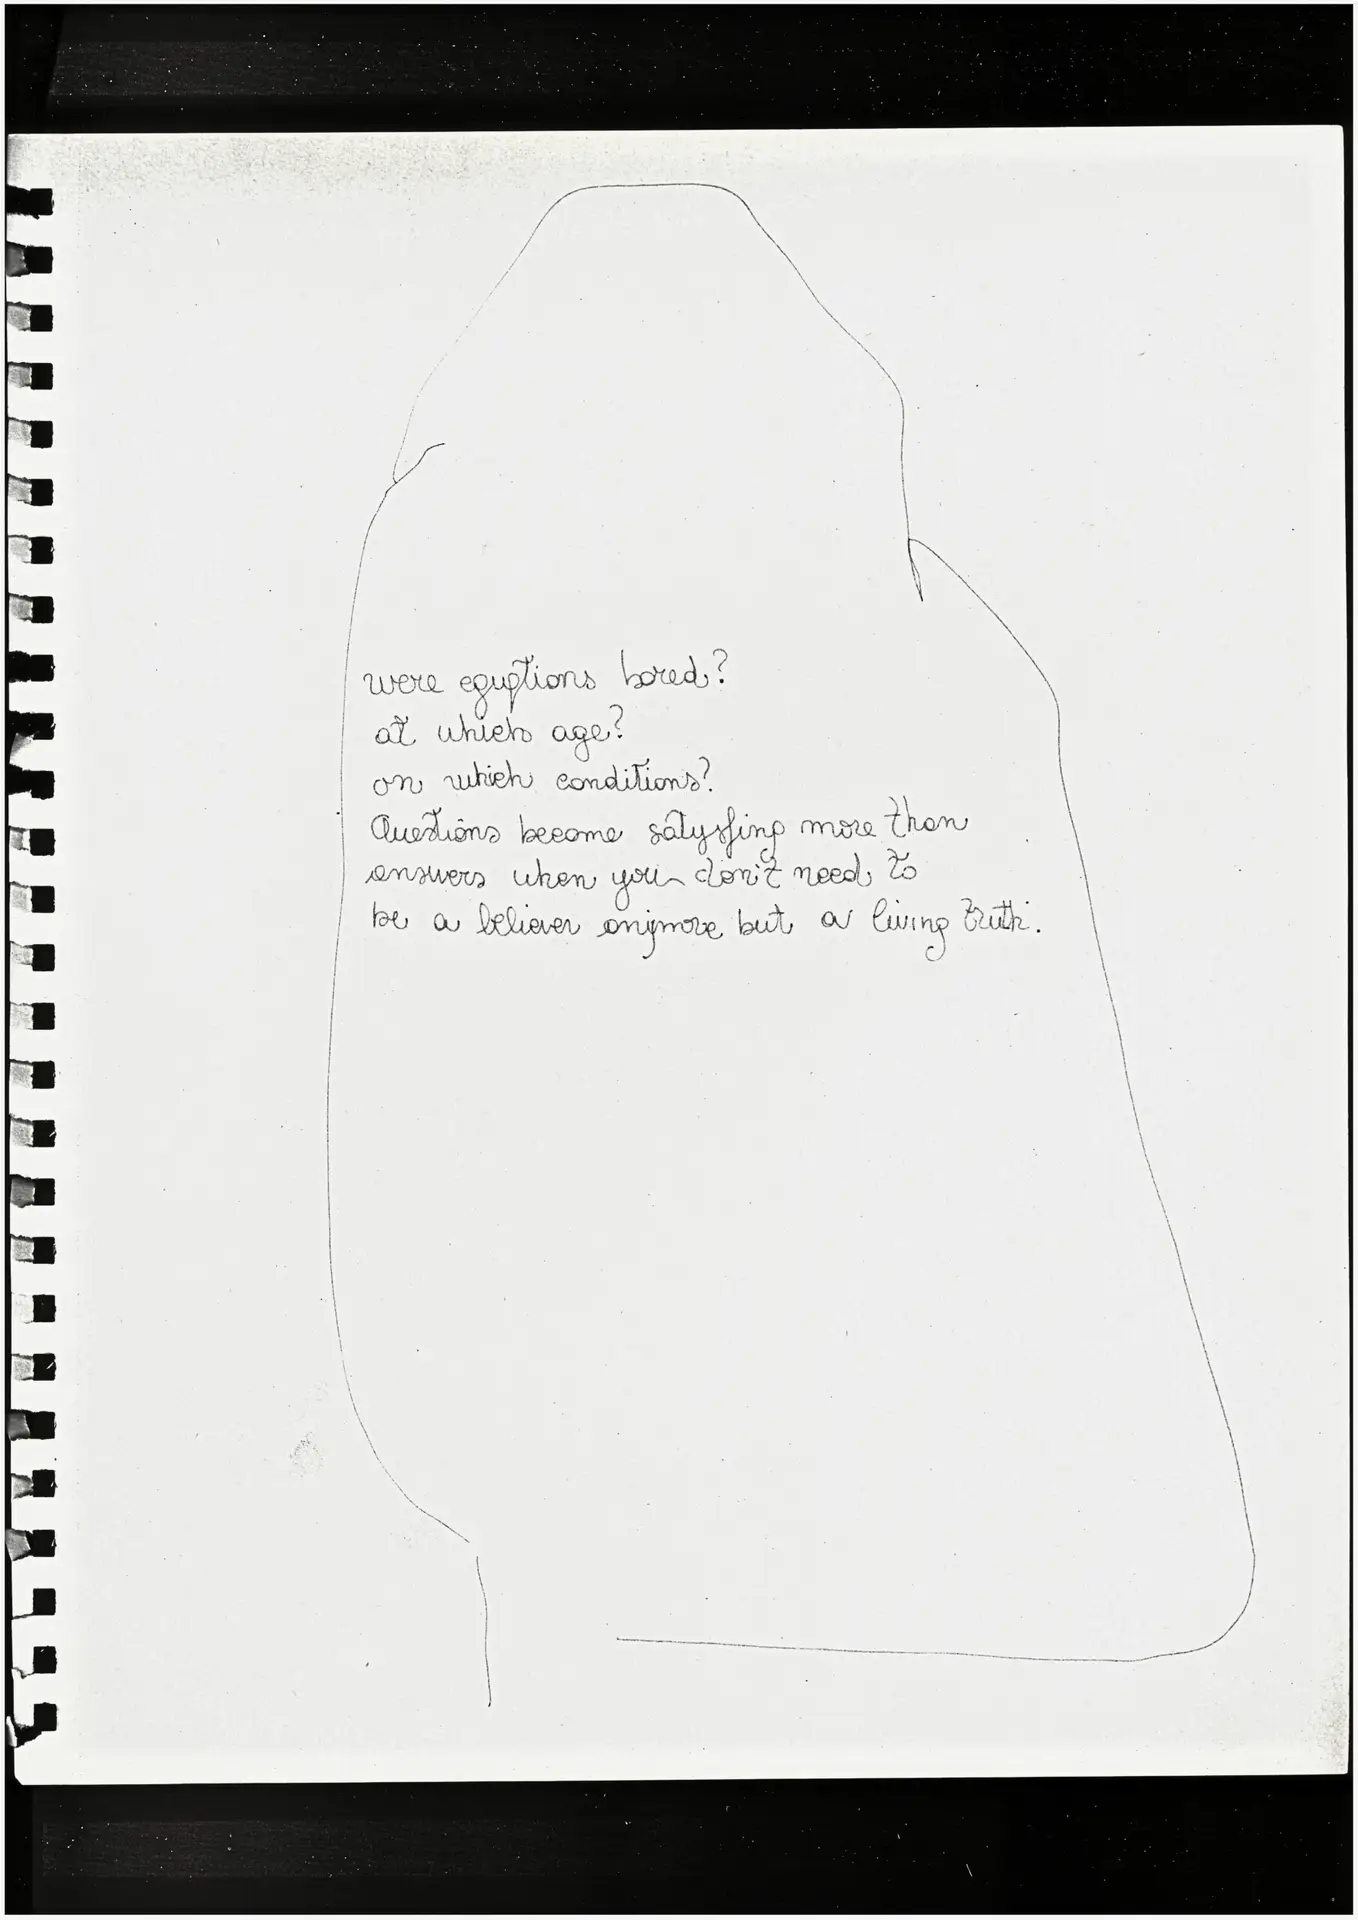 were eguptions bored?
at which age?
on which conditions?
Questions become satysfing more than
answers when you don't need to
be a believer anymore but a living truth.